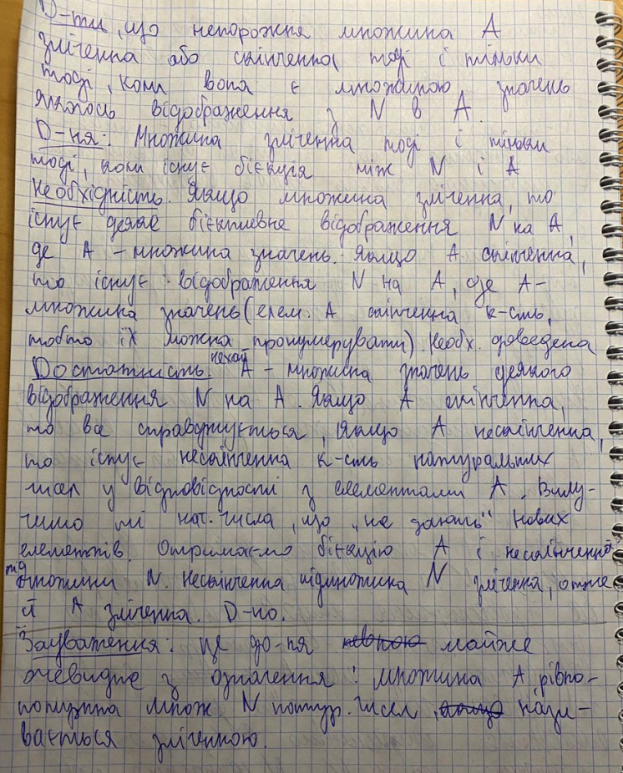 Д-ти, що непорожня множина A
зліченна або скінченна тоді і тільки
тоді, коли вона є множиною значень
якогось відображення з N в A.
Д-ня: Множина зліченна тоді і тільки
тоді, коли існує бієкція між N і A
Необхідність. Якщо множина зліченна, то
існує деяке бієктивне відображення N на A,
де A – множина значень. Якщо A скінченна,
то існує відображення N на A, де A –
множина значень (елем. A скінченна к-сть,
тобто їх можна пронумерувати). Необх. доведена
Достатність. нехай A – множина значень деякого
відображення N на A. Якщо A скінченна,
то все справджується, якщо A нескінченна,
то існує нескінченна к-сть натуральних
чисел у відповідності з елементами A. Вилу-
чимо ті нат. числа, що "не дають" нових
елементів. Отримаємо бієкцію A і нескінченної
підмножини N. Нескінченна підмножина N зліченна, отже
й A зліченна. Д-но.
Зауваження: це до-ня майже
очевидне з означення: множина A, рівно-
потужна множ. N натур. чисел, нази-
вається зліченною.